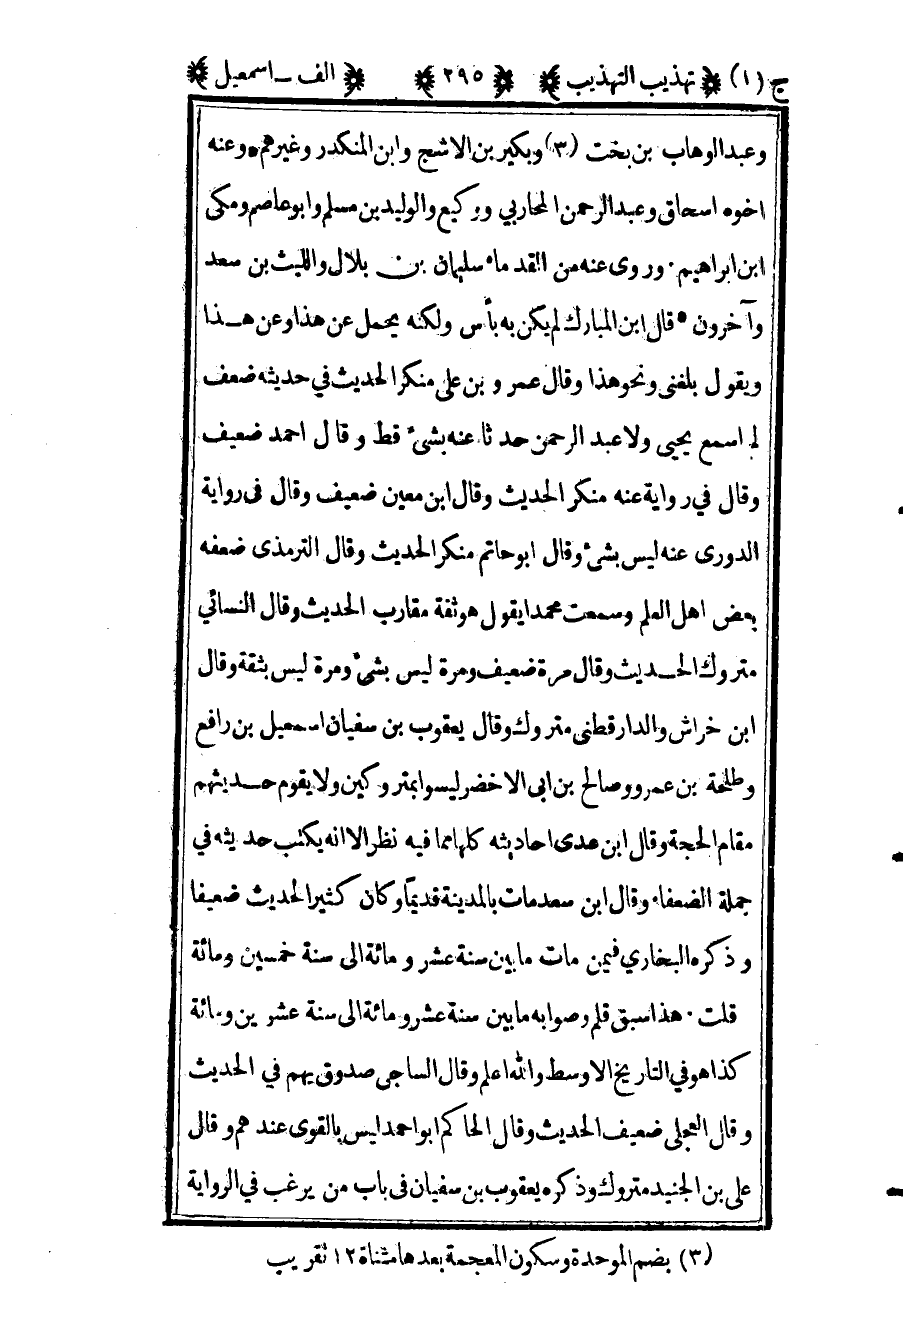 ج (١) تهذيب التهذيب ٢٩٥ الف ـ اسمعيل
وعبد الوهاب بن بخت (٣) وبكير بن الاشج وابن المنكدر وغيرهم • وعنه
اخوه اسحاق وعبد الرحمن المحاربي ووكيع والوليد بن مسلم وابو عاصم ومكي
ابن ابراهيم . وروى عنه من القدماء سليمان بن بلال والليث بن سعد
وآخرون • قال ابن المبارك لم يكن به بأس ولكنه يحمل عن هذا وعن هـذا
ويقول بلغنى ونحو هذا وقال عمرو بن على منكر الحديث في حديثه ضعف
لم اسمع يحيى ولا عبد الرحمن حدثا عنه بشئ قط وقال احمد ضعيف
وقال في رواية عنه منكر الحديث وقال ابن معين ضعيف وقال فى رواية
الدورى عنه ليس بشئ وقال ابو حاتم منكر الحديث وقال الترمذى ضعفه
بعض اهل العلم وسمعت محمدا يقول هو ثقة مقارب الحديث وقال النسائي
متروك الحـديث وقال مرة ضعيف ومرة ليس بشئ ومرة ليس بثقة وقال
ابن خراش والدارقطنى متروك وقال يعقوب بن سفيان اسمعيل بن رافع
وطلحة بن عمرو وصالح بن ابى الاخضر ليسوا بمتروكين ولا يقوم حـديثهم
مقام الحجة وقال ابن عدى احاديثه كلها مما فيه نظر الا انه يكتب حديثه في
جملة الضعفاء وقال ابن سعد مات بالمدينة قديمًا وكان كثير الحديث ضعيفا
وذكره البخاري فيمن مات ما بين سنة عشر ومائة الى سنة خمسين ومائة
قلت . هذا سبق قلم وصوابه ما بين سنة عشر ومائة الى سنة عشرين ومائة
كذا هو في التاريخ الاوسط والله اعلم وقال الساجى صدوق يهم في الحديث
وقال العجلى ضعيف الحديث وقال الحاكم ابو احمد ليس بالقوى عندهم وقال
على بن الجنيد متروك وذكره يعقوب بن سفيان فى باب من يرغب في الرواية
(٣) بضم الموحدة وسكون المعجمة بعدها مثناة ١٢ تقريب